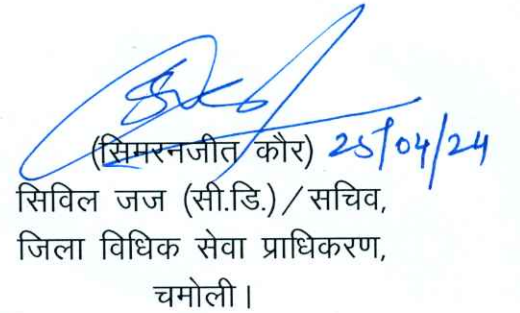 (सिमरनजीत कौर) 25/04/24
सिविल जज (सी.डि.)/सचिव,
जिला विधिक सेवा प्राधिकरण,
चमोली।